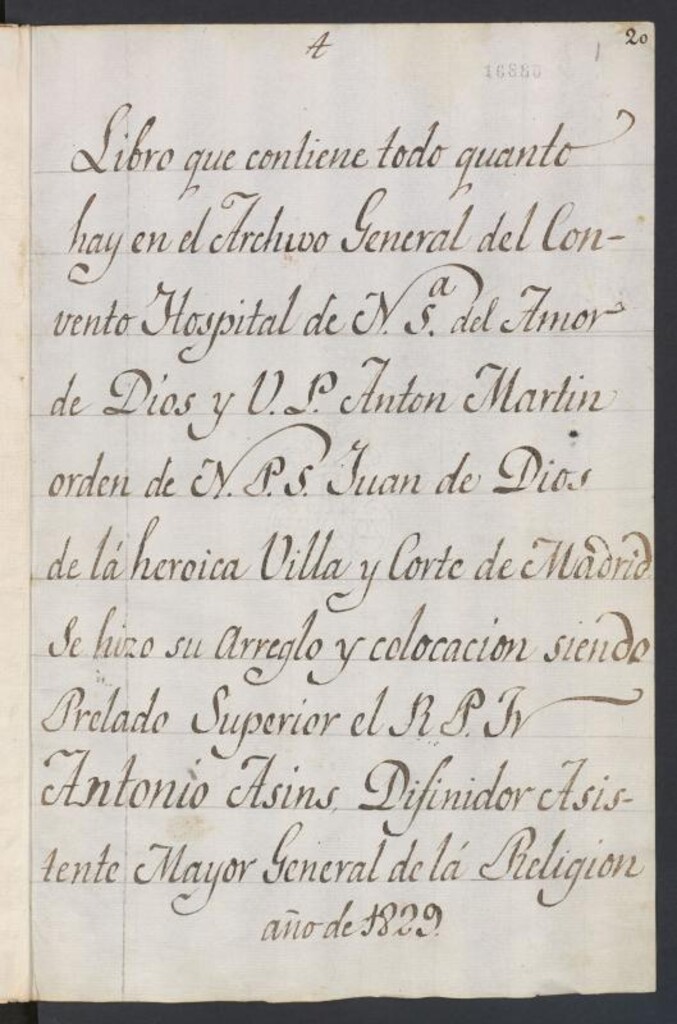 4
20
16880
Libro que contiene todo quanto
hay en el Archivo General del Con-
vento Hospital de N. S.ª del Amor
de Dios y V. P. Anton Martin
orden de N. P. S. Juan de Dios
de lá heroica Villa y Corte de Madrid
Se hizo su Arreglo y colocacion siendo
Prelado Superior el R P. Fr
Antonio Asins, Difinidor Asis-
tente Mayor General de lá Religion
año de 1829.